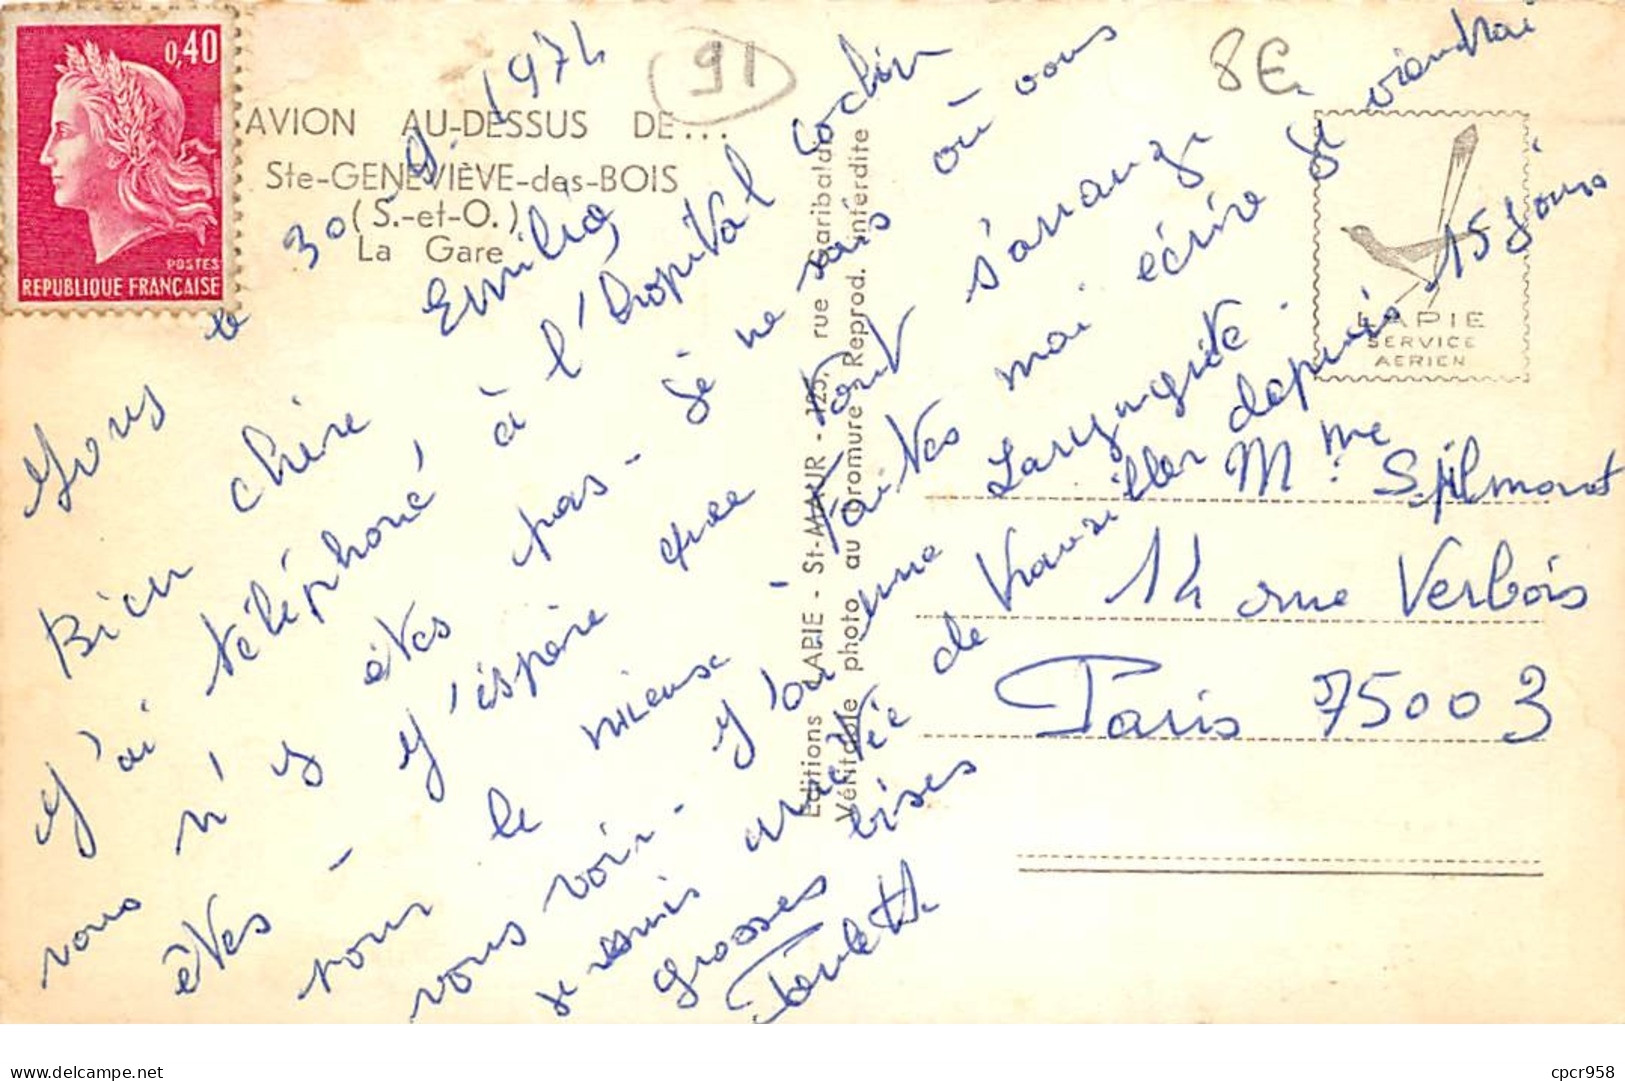 0,40
POSTES
REPUBLIQUE FRANÇAISE
91
8€
AVION AU-DESSUS DE...
Ste-GENEVIÈVE-des-BOIS
(S.-et-O.)
La Gare
Editions LAPIE - St-MAUR - 125, rue Garibaldi
Véritable photo au bromure Reprod. interdite
LAPIE
SERVICE
AERIEN
le 30 1974
Bien chère Emilia,
J'ai téléphoné à l'hopital Cochin
vous n'y êtes pas - je ne sais où vous
êtes - J'espère que tout s'arrange
pour le mieux - Faites moi écrire je viendrai
vous voir - J'ai eu une Laryngite.
je suis arrêtée de travailler depuis 15 jours
grosses bises
Paulette
M. Mme Spilmont
14 rue Verbois
Paris 75003
cpcr958